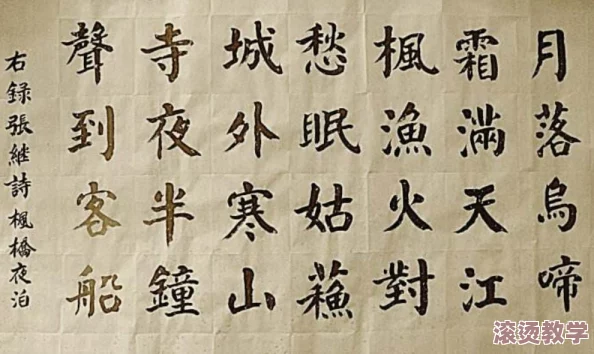 月落烏啼
霜滿天江
楓漁火對
愁眠姑蘓
城外寒山
寺夜半鐘
聲到客船
右録張継詩楓橋夜泊
滚烫教学